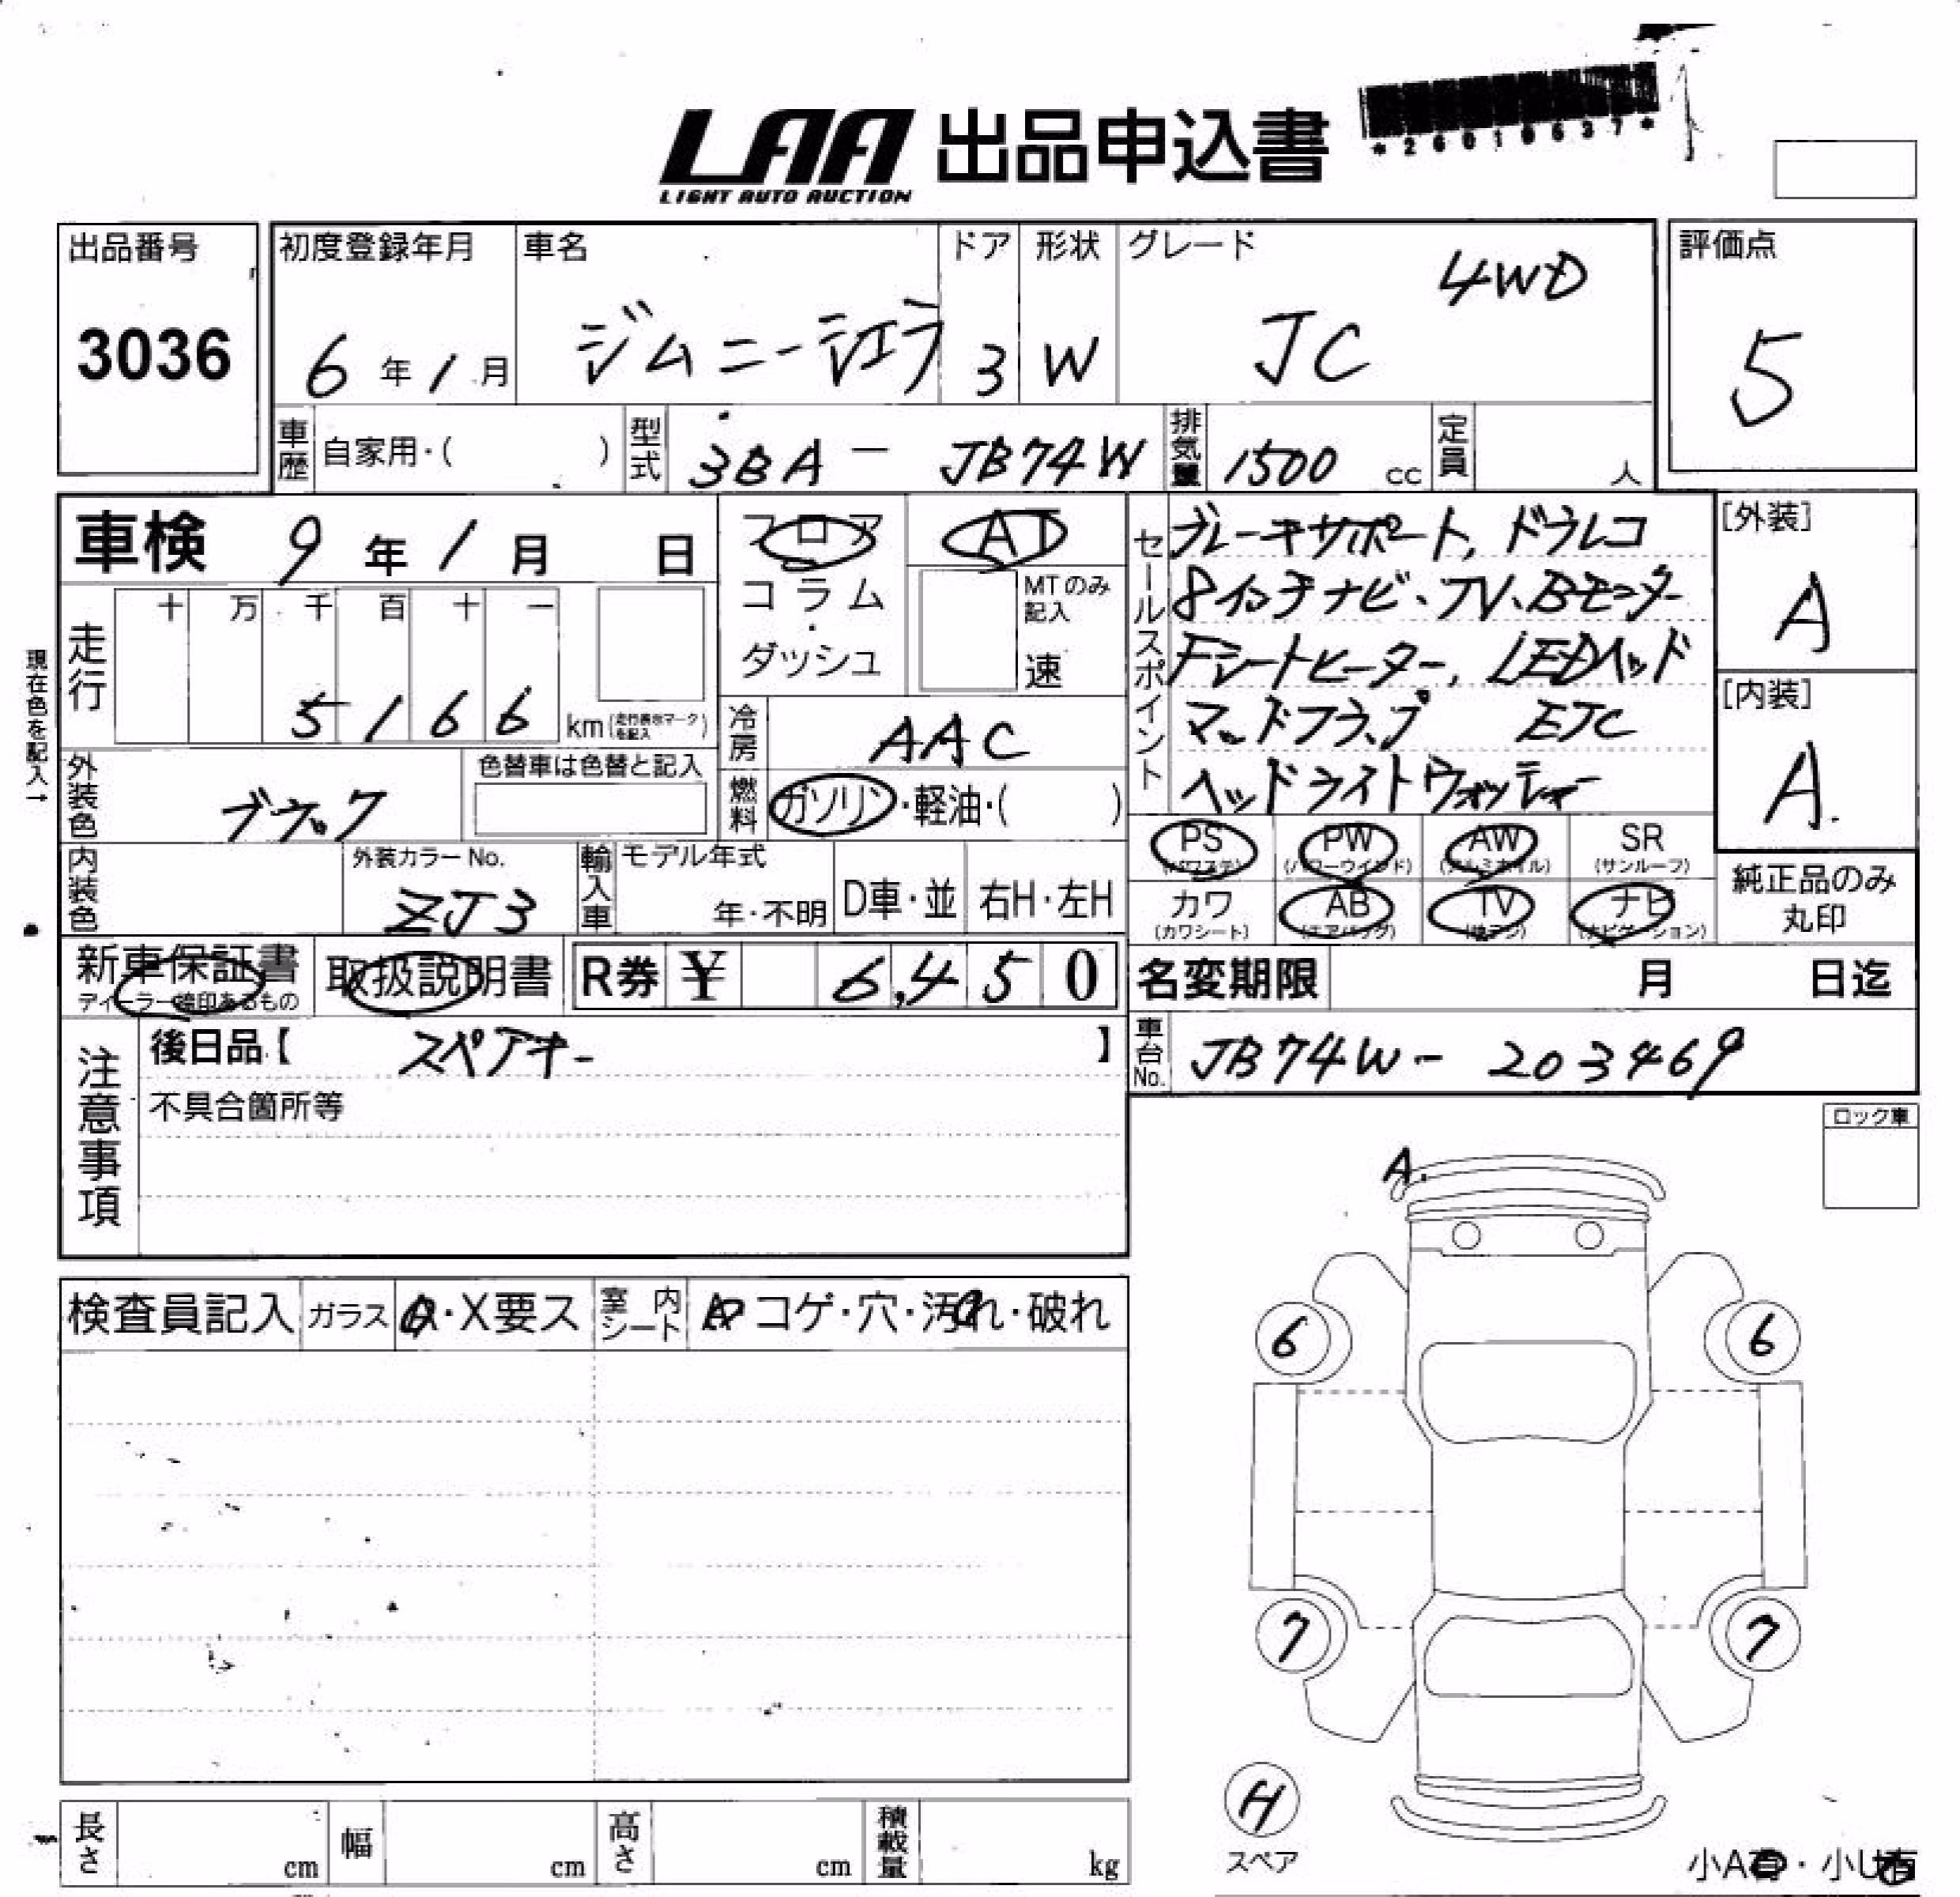 LAA 出品申込書
LIGHT AUTO AUCTION
*26010637*
出品番号
3036
初度登録年月
6年1月
車名
ジムニーシエラ
ドア
3
形状
W
グレード
4WD
JC
評価点
5
車歴 自家用・( )
型式 3BA - JB74W
排気量 1500 cc
定員 人
車検 9年1月 日
フロア
コラム
ダッシュ
AT
MTのみ記入
速
セールスポイント
ブレーキサポート, ドラレコ
8インチナビ、TV、Bモニター
Fシートヒーター, LEDヘッド
マッドフラップ ETC
ヘッドライトウォッシャー
[外装]
A
[内装]
A.
現在色を記入→
走行
十 万 千 百 十 一
5166 km(走行表示マークを記入)
冷房 AAC
燃料 ガソリン・軽油・( )
外装色 ブラック
色替車は色替と記入
内装色
外装カラーNo.
ZJ3
輸入車
モデル年式
年・不明
D車・並
右H・左H
PS
(パワステ)
PW
(パワーウインド)
AW
(アルミホイル)
SR
(サンルーフ)
カワ
(カワシート)
AB
(エアバッグ)
TV
ナビ
(ナビゲーション)
純正品のみ
丸印
新車保証書
ディーラー捺印あるもの
取扱説明書
R券 ¥ 6,450
名変期限 月 日迄
車台No. JB74W- 203469
注意事項
後日品【 スペアキー 】
不具合箇所等
ロック車
A.
検査員記入
ガラス A・X要ス
室内シート コゲ・穴・汚れ・破れ
6
6
7
7
H
スペア
長さ cm
幅 cm
高さ cm
積載量 kg
小A有・小U有